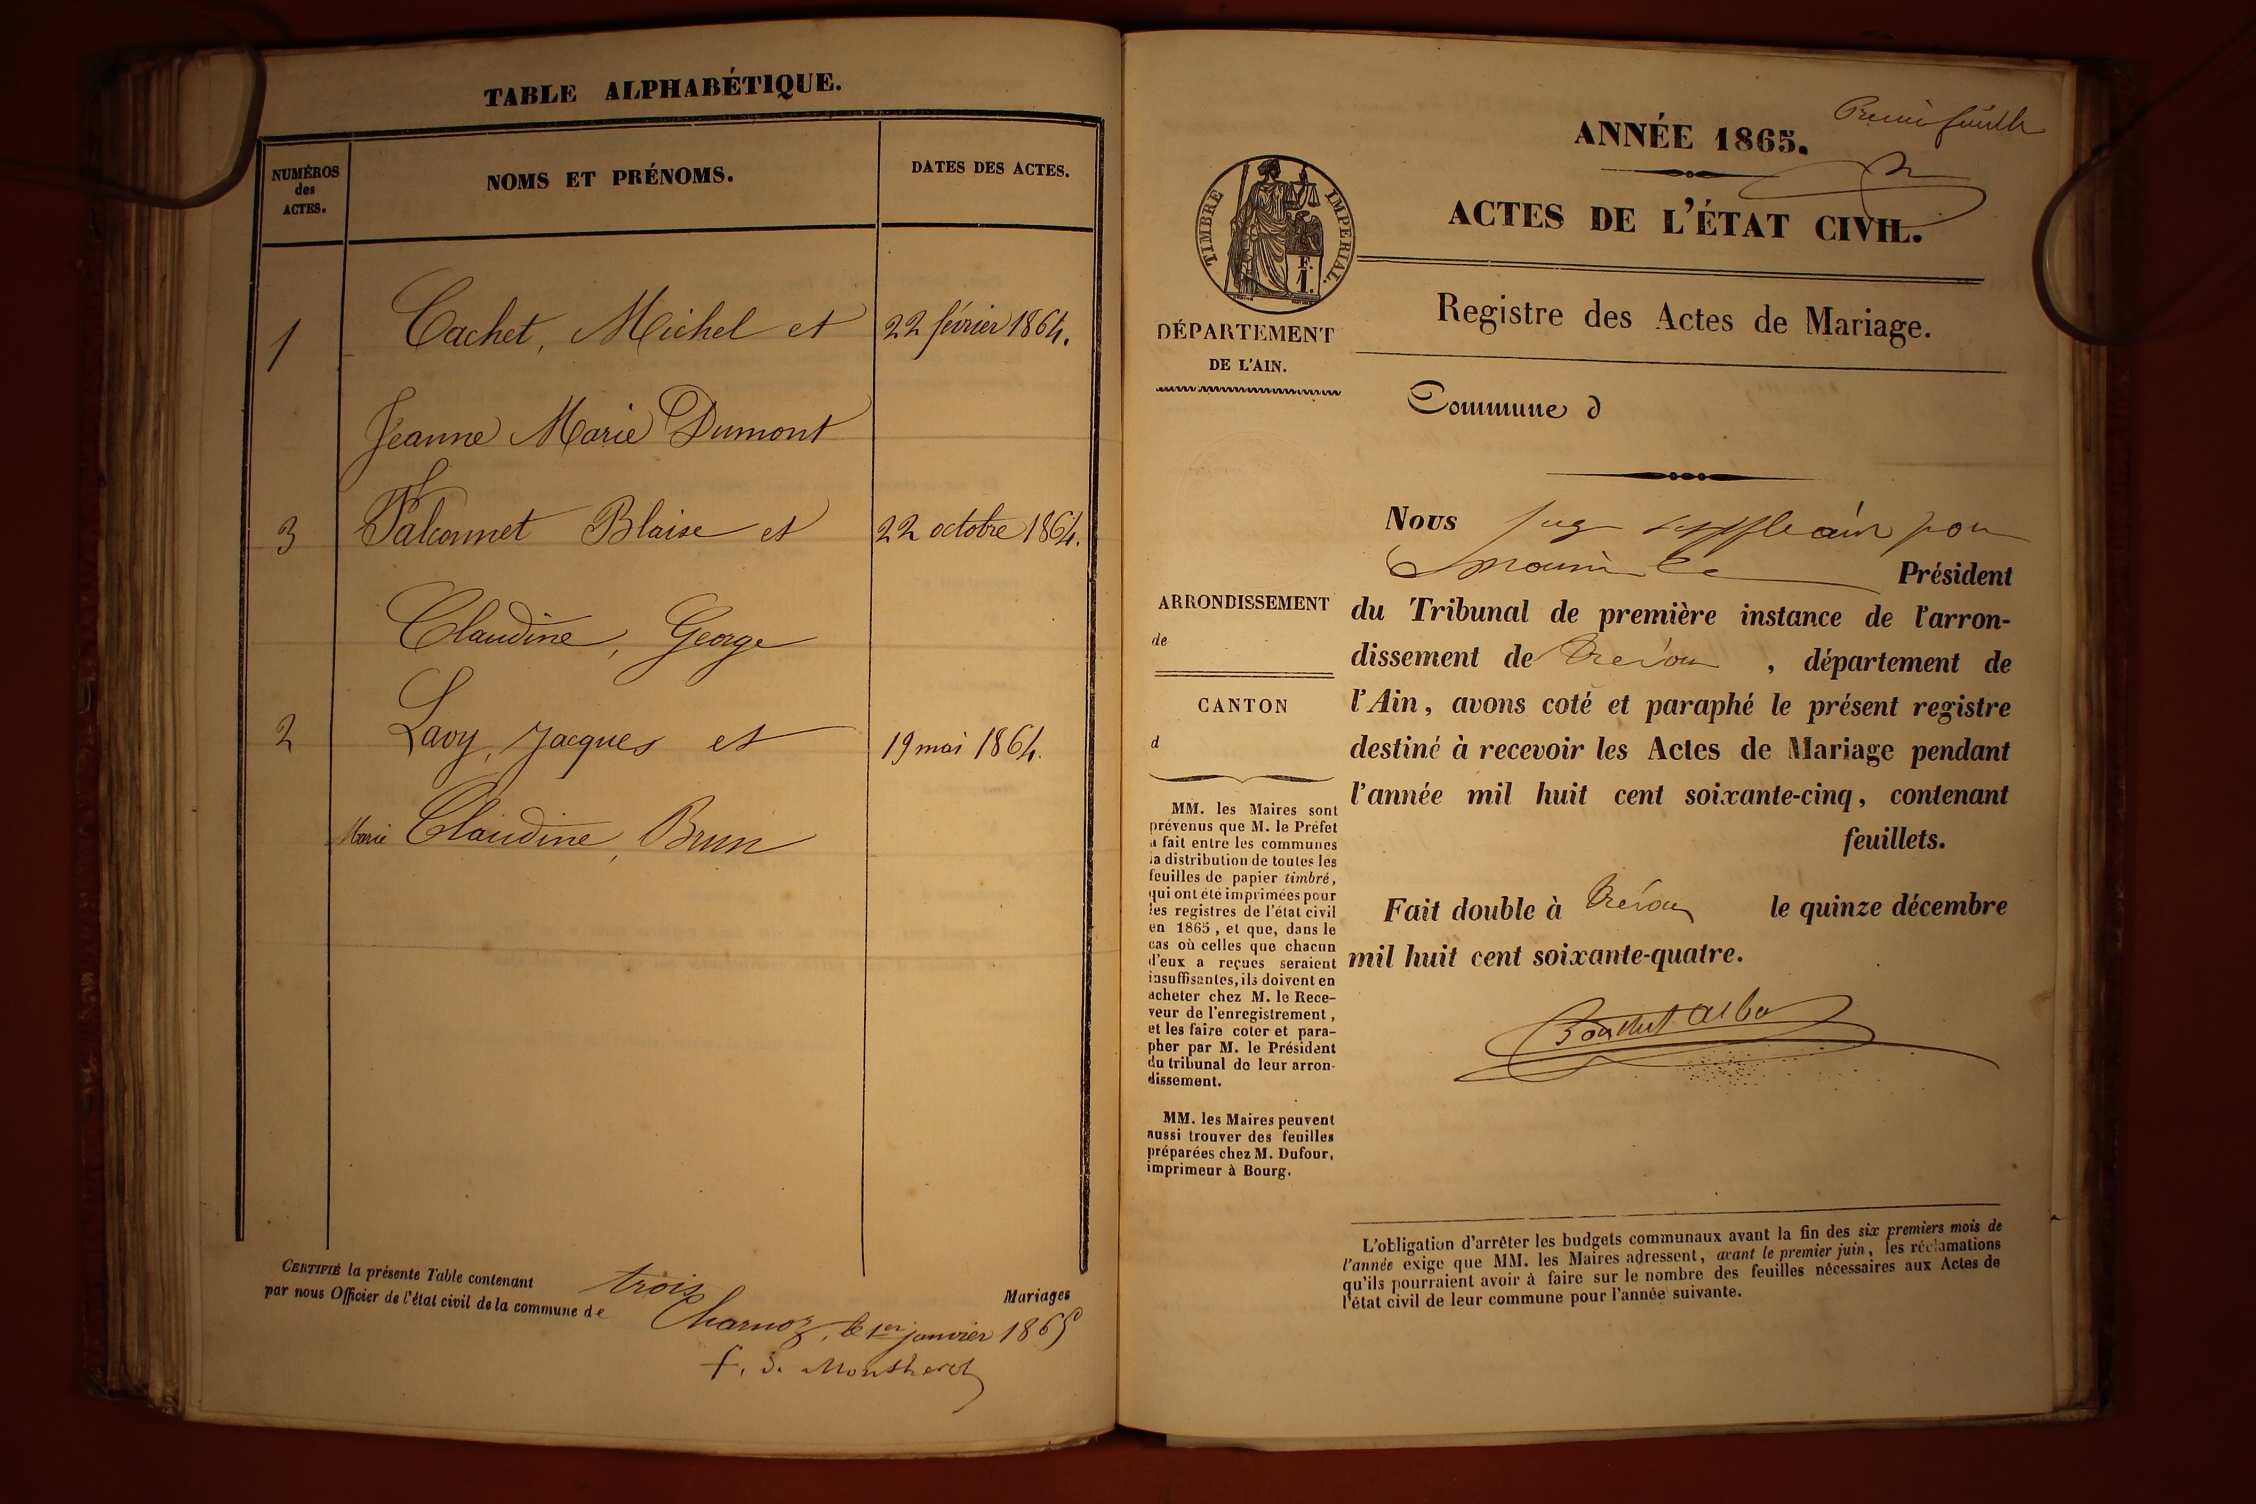 TABLE ALPHABÉTIQUE.
NUMÉROS
des
ACTES.
NOMS ET PRÉNOMS.
DATES DES ACTES.
1 Cachet, Michel et 22 février 1864.
Jeanne Marie Dumont
3 Falconnet Blaise et 22 octobre 1864.
Claudine, George
2 Lavy, Jacques et 19 mai 1864.
Marie Claudine, Brun
CERTIFIÉ la présente Table contenant trois Mariages
par nous Officier de l'état civil de la commune de
Charnoz, le 1er janvier 1865
Premier feuillet
ANNÉE 1865.
ACTES DE L'ÉTAT CIVIL.
TIMBRE IMPERIAL.
F.
1.
Registre des Actes de Mariage.
DÉPARTEMENT
DE L'AIN.
Commune d
ARRONDISSEMENT
de
CANTON
d
MM. les Maires sont
prévenus que M. le Préfet
a fait entre les communes
la distribution de toutes les
feuilles de papier timbré,
qui ont été imprimées pour
les registres de l'état civil
en 1865, et que, dans le
cas où celles que chacun
d'eux a reçues seraient
insuffisantes, ils doivent en
acheter chez M. le Rece-
veur de l'enregistrement,
et les faire coter et para-
pher par M. le Président
du tribunal de leur arron-
dissement.
MM. les Maires peuvent
aussi trouver des feuilles
préparées chez M. Dufour,
imprimeur à Bourg.
Nous juge suppléant pour
Président
du Tribunal de première instance de l'arron-
dissement de Trévoux, département de
l'Ain, avons coté et paraphé le présent registre
destiné à recevoir les Actes de Mariage pendant
l'année mil huit cent soixante-cinq, contenant
feuillets.
Fait double à Trévoux le quinze décembre
mil huit cent soixante-quatre.
L'obligation d'arrêter les budgets communaux avant la fin des six premiers mois de
l'année exige que MM. les Maires adressent, avant le premier juin, les réclamations
qu'ils pourraient avoir à faire sur le nombre des feuilles nécessaires aux Actes de
l'état civil de leur commune pour l'année suivante.